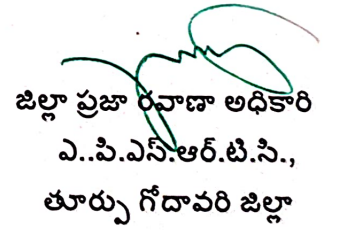 జిల్లా ప్రజా రవాణా అధికారి
ఎ..పి.ఎస్.ఆర్.టి.సి.,
తూర్పు గోదావరి జిల్లా